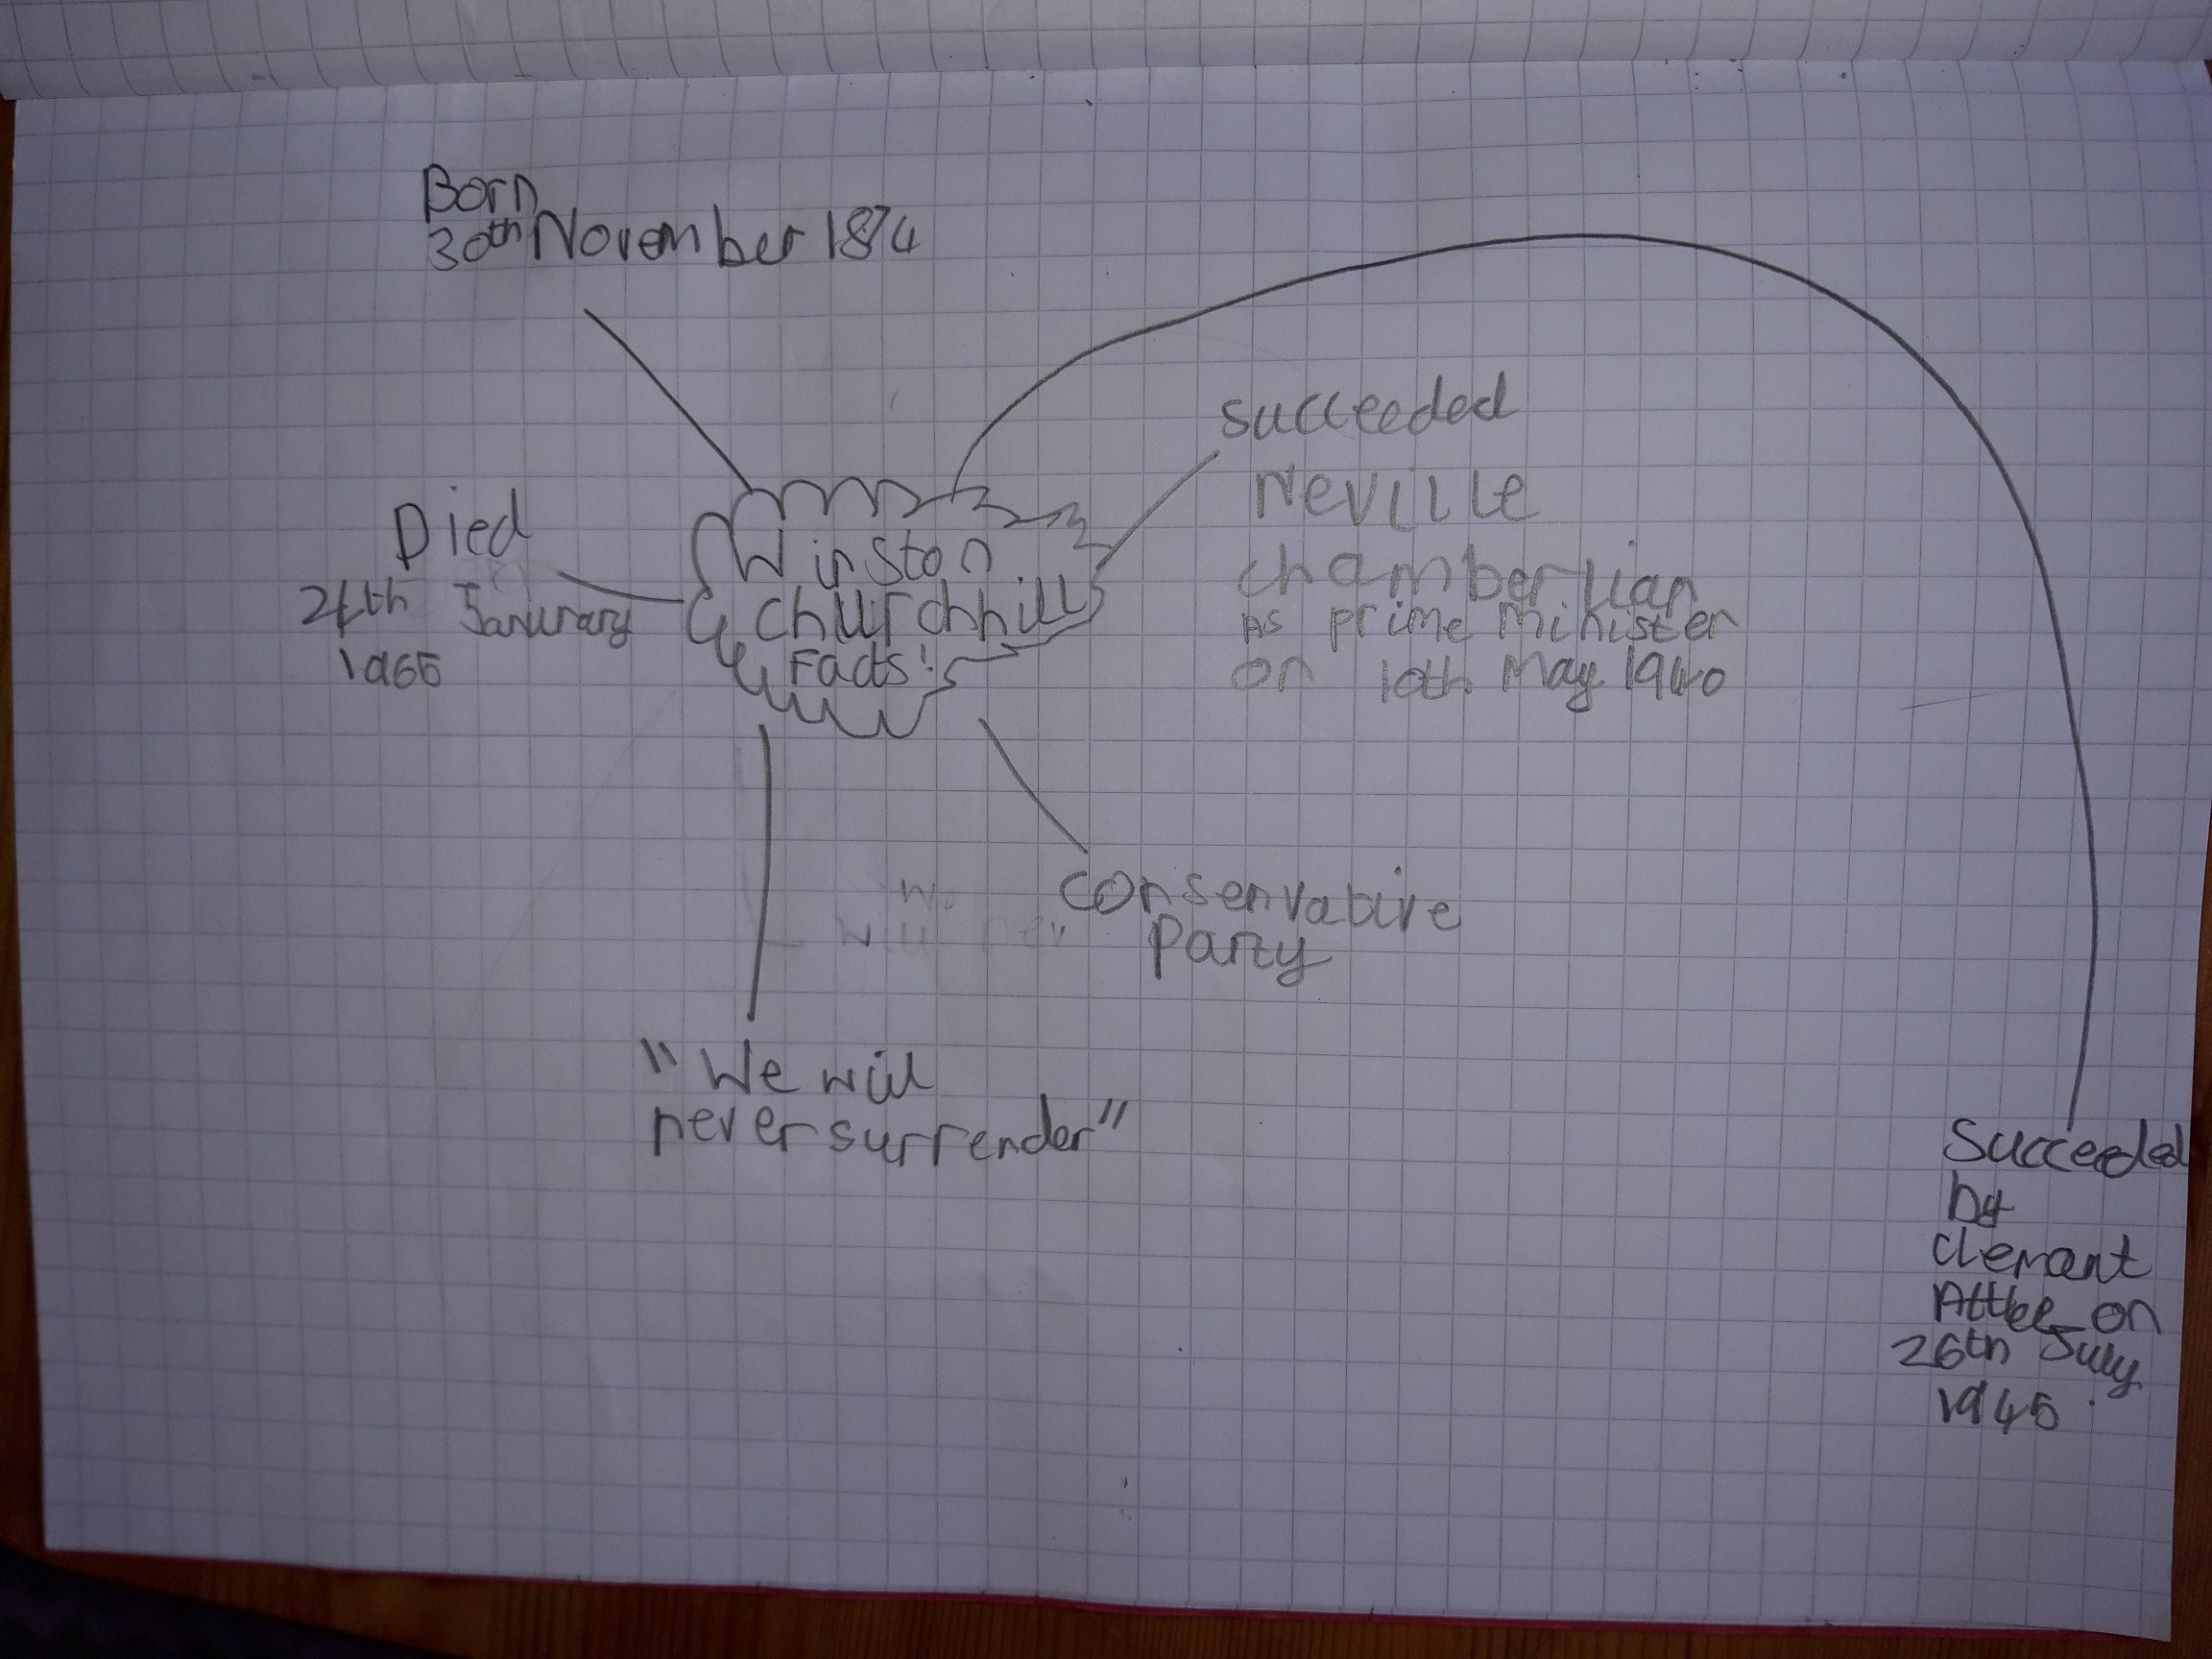 Born
30th November 1874
Winston
Churchhill
Facts!
Died
24th Janurary
1965
succeeded
Neville
chamberlian
As prime minister
on 10th May 1940
conservative
Party
"We will
never surrender"
Succeeded
by
clemant
Attlee on
26th July
1945.